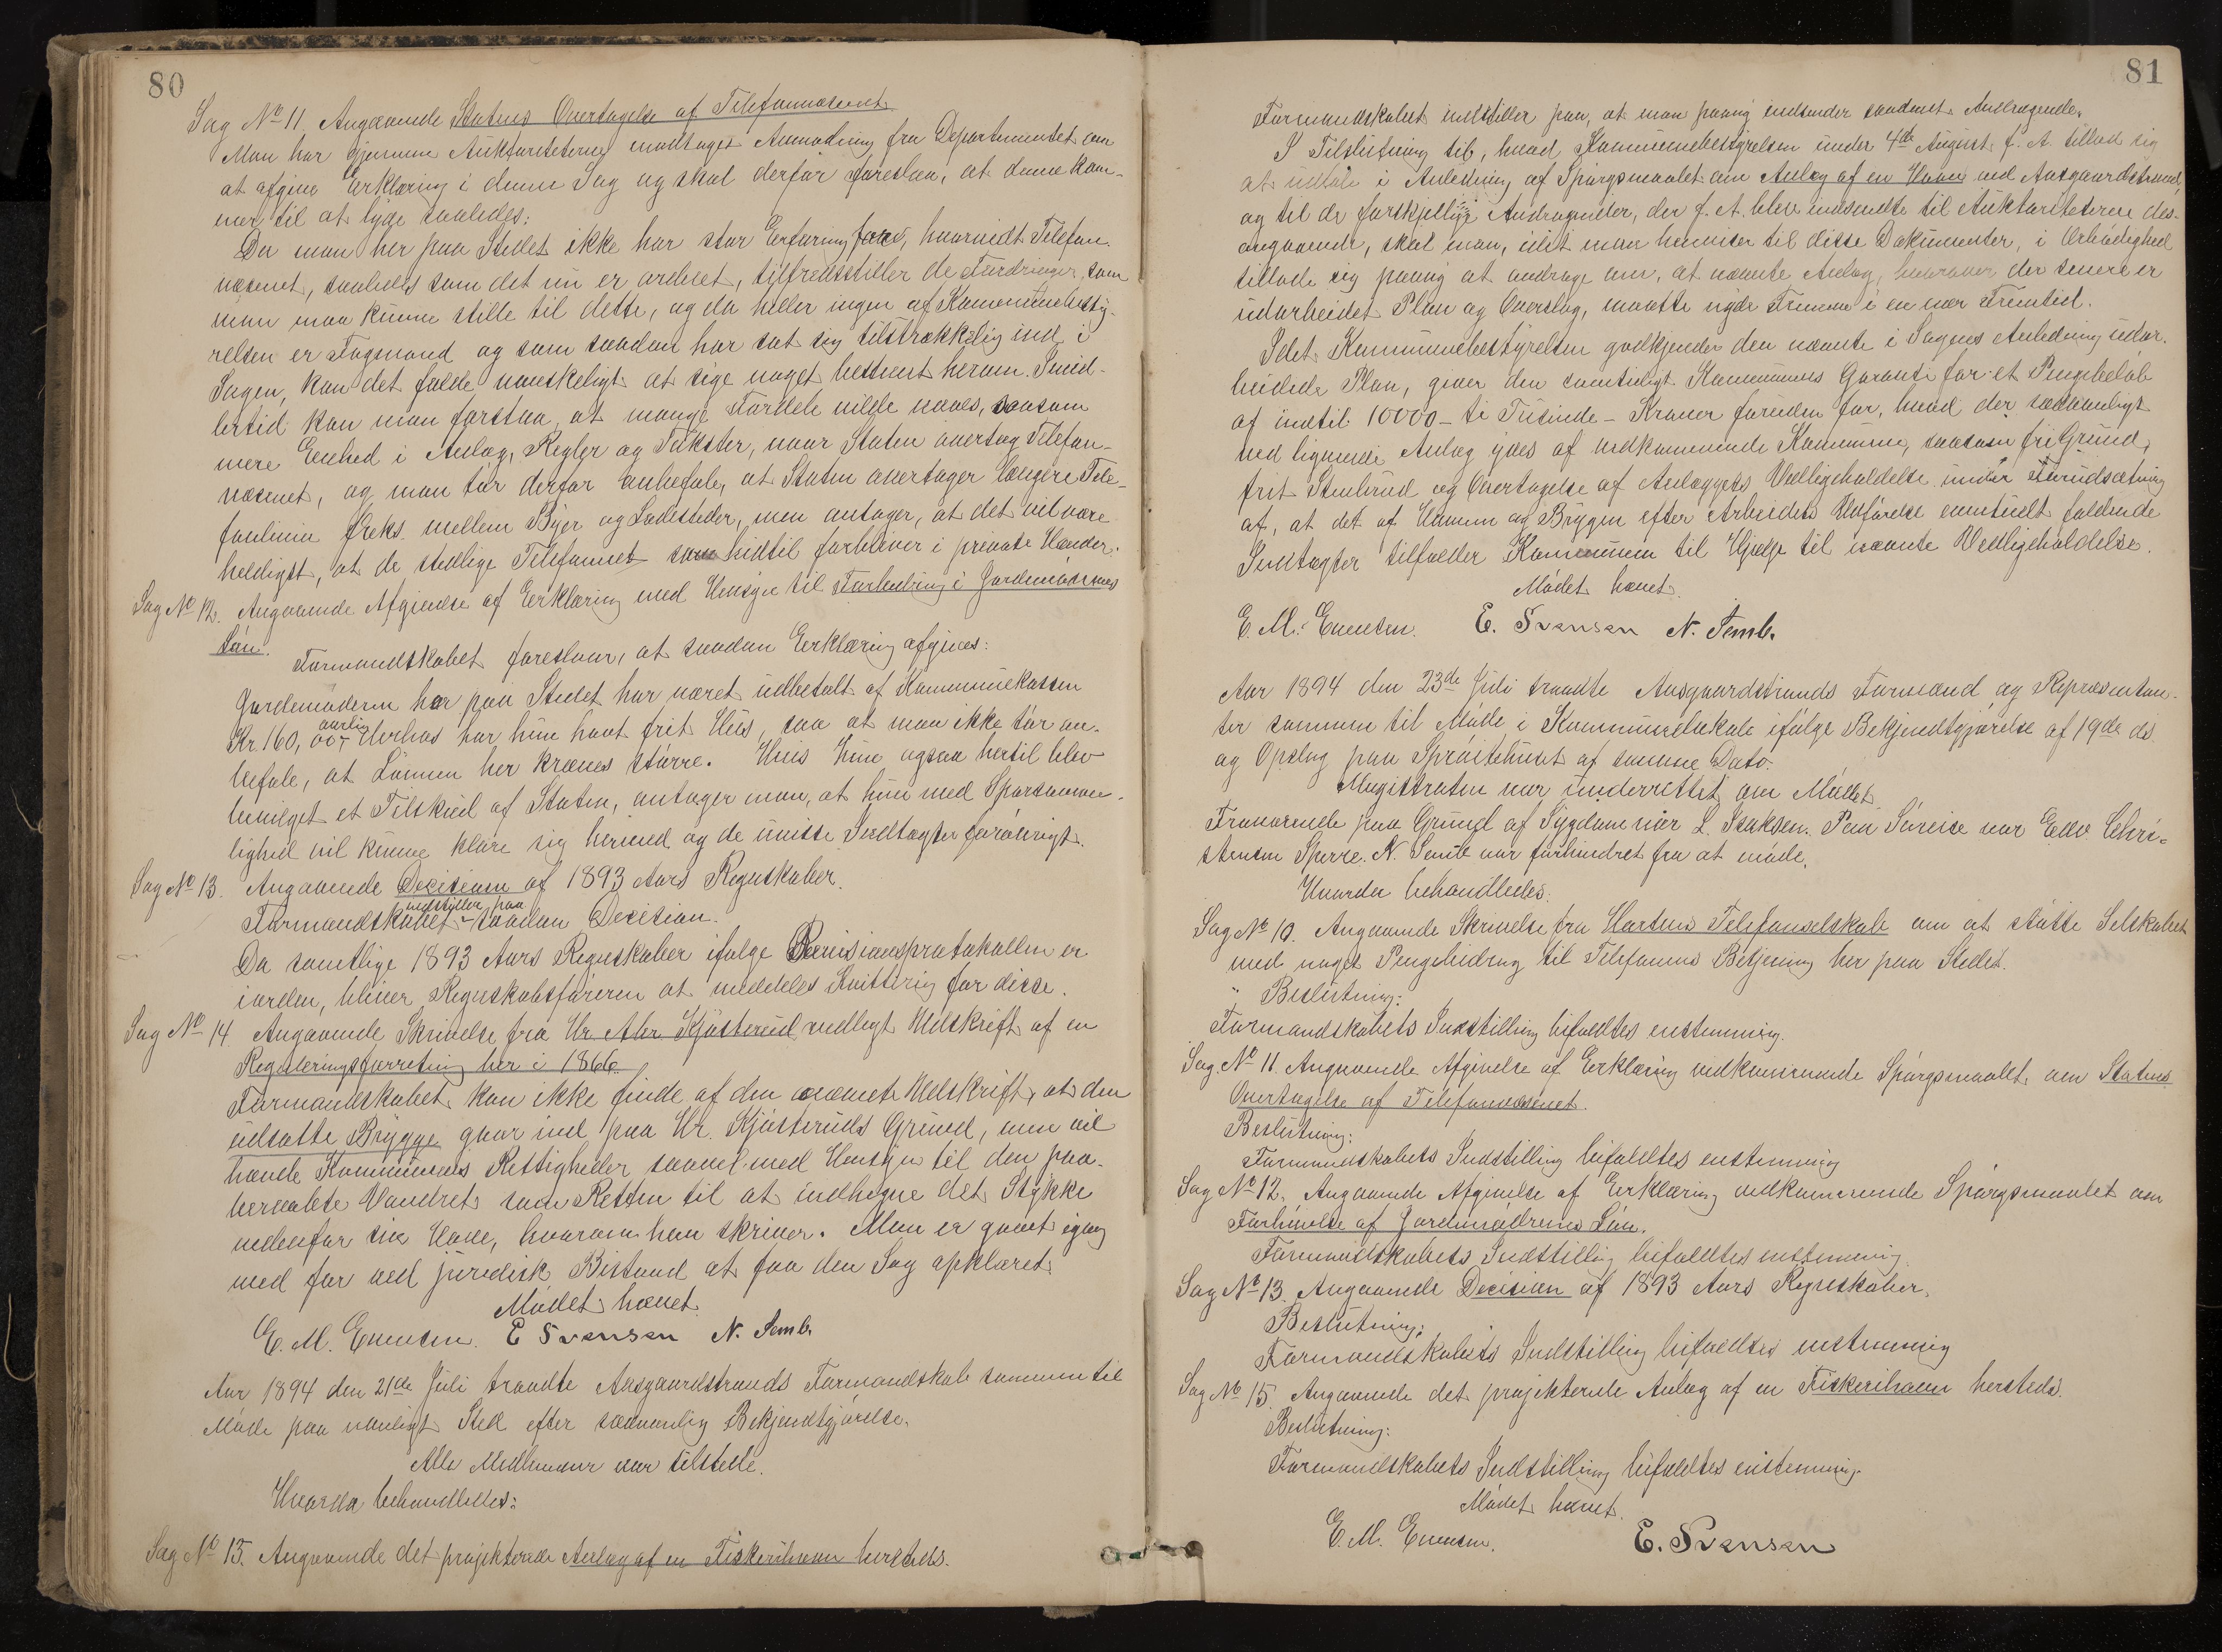 80
Sag No 11. Angaaende Statens Overtagelse af Telefonvæsenet.
Man har gjennem Auktoriteterne modtaget Anmodning fra Departementet om
at afgive Erklæring i denne Sag og skal derfor foreslaa, at denne kom-
mer til at lyde saaledes:
Da man her paa Stedet ikke har stor Erfaring for, hvorvidt Telefon-
væsenet, saaledes som det nu er ordnet, tilfredsstiller de Fordringer, som
man maa kunne stille til dette, og da heller ingen af Kommunebesty-
relsen er Fagmand og som saadan har sat sig tilstrækkelig ind i
Sagen, kan det falde vanskeligt at sige noget bestemt herom. Imid-
lertid kan man forstaa, at mange Fordele vilde naaes, saasom
mere Eenhed i Anlæg, Regler og Takster, naar Staten overtog Telefon-
væsenet, og man tør derfor anbefale, at Staten overtager længere Tele-
fonlinier f.eks. mellem Byer og Ladesteder, men antager, at det vil være
heldigst, at de stedlige Telefonnet som hidtil forbliver i private Hænder.
Sag No 12. Angaaende Afgivelse af Erklæring med Hensyn til Forbedring i Jordemødrenes
Løn.
Formandskabet foreslaar, at saadan Erklæring afgives:
Jordemoderen her paa Stedet har været udbetalt af Kommunekassen
Kr. 160,00 aarlig. Herhos har hun havt frit Hus, saa at man ikke tør an-
befale, at Lønnen her kræves større. Hvis hun ogsaa hertil blev
bevilget et Tilskud af Staten, antager man, at hun med Sparsomme-
lighed vil kunne klare sig hermed og de uvisse Indtægter forøvrigt.
Sag No 13. Angaaende Decision af 1893 Aars Regnskaber.
Formandskabet indstiller paa saadan Decision.
Da samtlige 1893 Aars Regnskaber ifølge Revisionsprotokollen er
iorden, bliver Regnskabsføreren at meddele Kvittering for disse.
Sag No 14. Angaaende Skrivelse fra Hr. Abr. Kjøsterud vedlagt Udskrift af en
Reguleringsforretning her i 1866
Formandskabet kan ikke finde af den nævnte Udskrift, at den
udsatte Brygge gaar ind paa Hr. Kjøsteruds Grund, men vil
hævde Kommunens Rettigheder saavel med Hensyn til den paa-
beraabte Vandret som Retten til at indhegne det Stykke
nedenfor sin Have, hvorom han skriver. Man er gaaet igang
med for ved juridisk Bistand at faa den Sag opklaret.
Mødet hævet.
E. M. Evensen. E Svensen N. Semb.
Aar 1894 den 21de Juli traadte Aasgaardstrands Formandskab sammen til
Møde paa vanligt Sted efter sædvanlig Bekjendtgjørelse.
Alle Medlemmer var tilstede.
Hvorda behandledes:
Sag No 15. Angaaende det projekterede Anlæg af en Fiskerihavn hersteds.
81
Formandskabet indstiller paa, at man paany indsender saadant Andragende.
I Tilslutning til, hvad Kommunebestyrelsen under 4de August f. A. tillod sig
at udtale i Anledning af Spørgsmaalet om Anlæg af en Havn ved Aasgaardstrand,
og til de forskjellige Andragender, der f. A. blev indsendte til Auktoriteterne des-
angaaende, skal man, idet man henviser til disse Dokumenter, i Ærbødighed
tillade sig paany at andrage om, at nævnte Anlæg, hvorover der senere er
udarbeidet Plan og Overslag, maatte nyde Fremme i en nær Fremtid.
Idet Kommunebestyrelsen godkjender den nævnte i Sagens Anledning udar-
beidede Plan, giver den samtidigt Kommunens Garanti for et Pengebeløb
af indtil 10000 - ti Tusinde - Kroner foruden for, hvad der sædvanligt
ved lignende Anlæg ydes af vedkommende Kommune, saasom fri Grund,
frit Stenbrud og Overtagelse af Anlæggets Vedligeholdelse under Forudsætning
af, at det af Havnen og Bryggen efter Arbeidets Udførelse eventuelt faldende
Indtægter tilfalder Kommunen til Hjælp til nævnte Vedligeholdelse.
Mødet hævet.
E. M. Evensen. E. Svensen N. Semb.
Aar 1894 den 23de Juli traadte Aasgaardstrands Formænd og Repræsentan-
ter sammen til Møde i Kommunelokale ifølge Bekjendtgjørelse af 19de ds.
og Opslag paa Sprøitehuset af samme Dato.
Magistraten var underrettet om Mødet.
Fraværende paa Grund af Sygdom var L. Isaksen. Paa Søreise var Edv. Chri-
stensen Sperre. N. Semb var forhindret fra at møde.
Hvorda behandledes:
Sag No 10. Angaaende Skrivelse fra Hortens Telefonselskab om at støtte Selskabet
med noget Pengebidrag til Telefonens Betjening her paa Stedet.
Beslutning:
Formandskabets Indstilling bifaldtes enstemmig.
Sag No 11. Angaaende Afgivelse af Erklæring vedkommende Spørgsmaalet om Statens
Overtagelse af Telefonvæsenet.
Beslutning:
Formandskabets Indstilling bifaldtes enstemmig
Sag No 12. Angaaende Afgivelse af Erklæring vedkommende Spørgsmaalet om
Forhøielse af Jordmødrenes Løn.
Formandskabets Indstilling bifaldtes enstemmig
Sag No 13. Angaaende Decision af 1893 Aars Regnskaber.
Beslutning:
Formandskabets Indstilling bifaldtes enstemmig
Sag No 15. Angaaende det projekterede Anlæg af en Fiskerihavn hersteds.
Beslutning:
Formandskabets Indstilling bifaldtes enstemmig.
Mødet hævet.
E. M. Evensen. E. Svensen